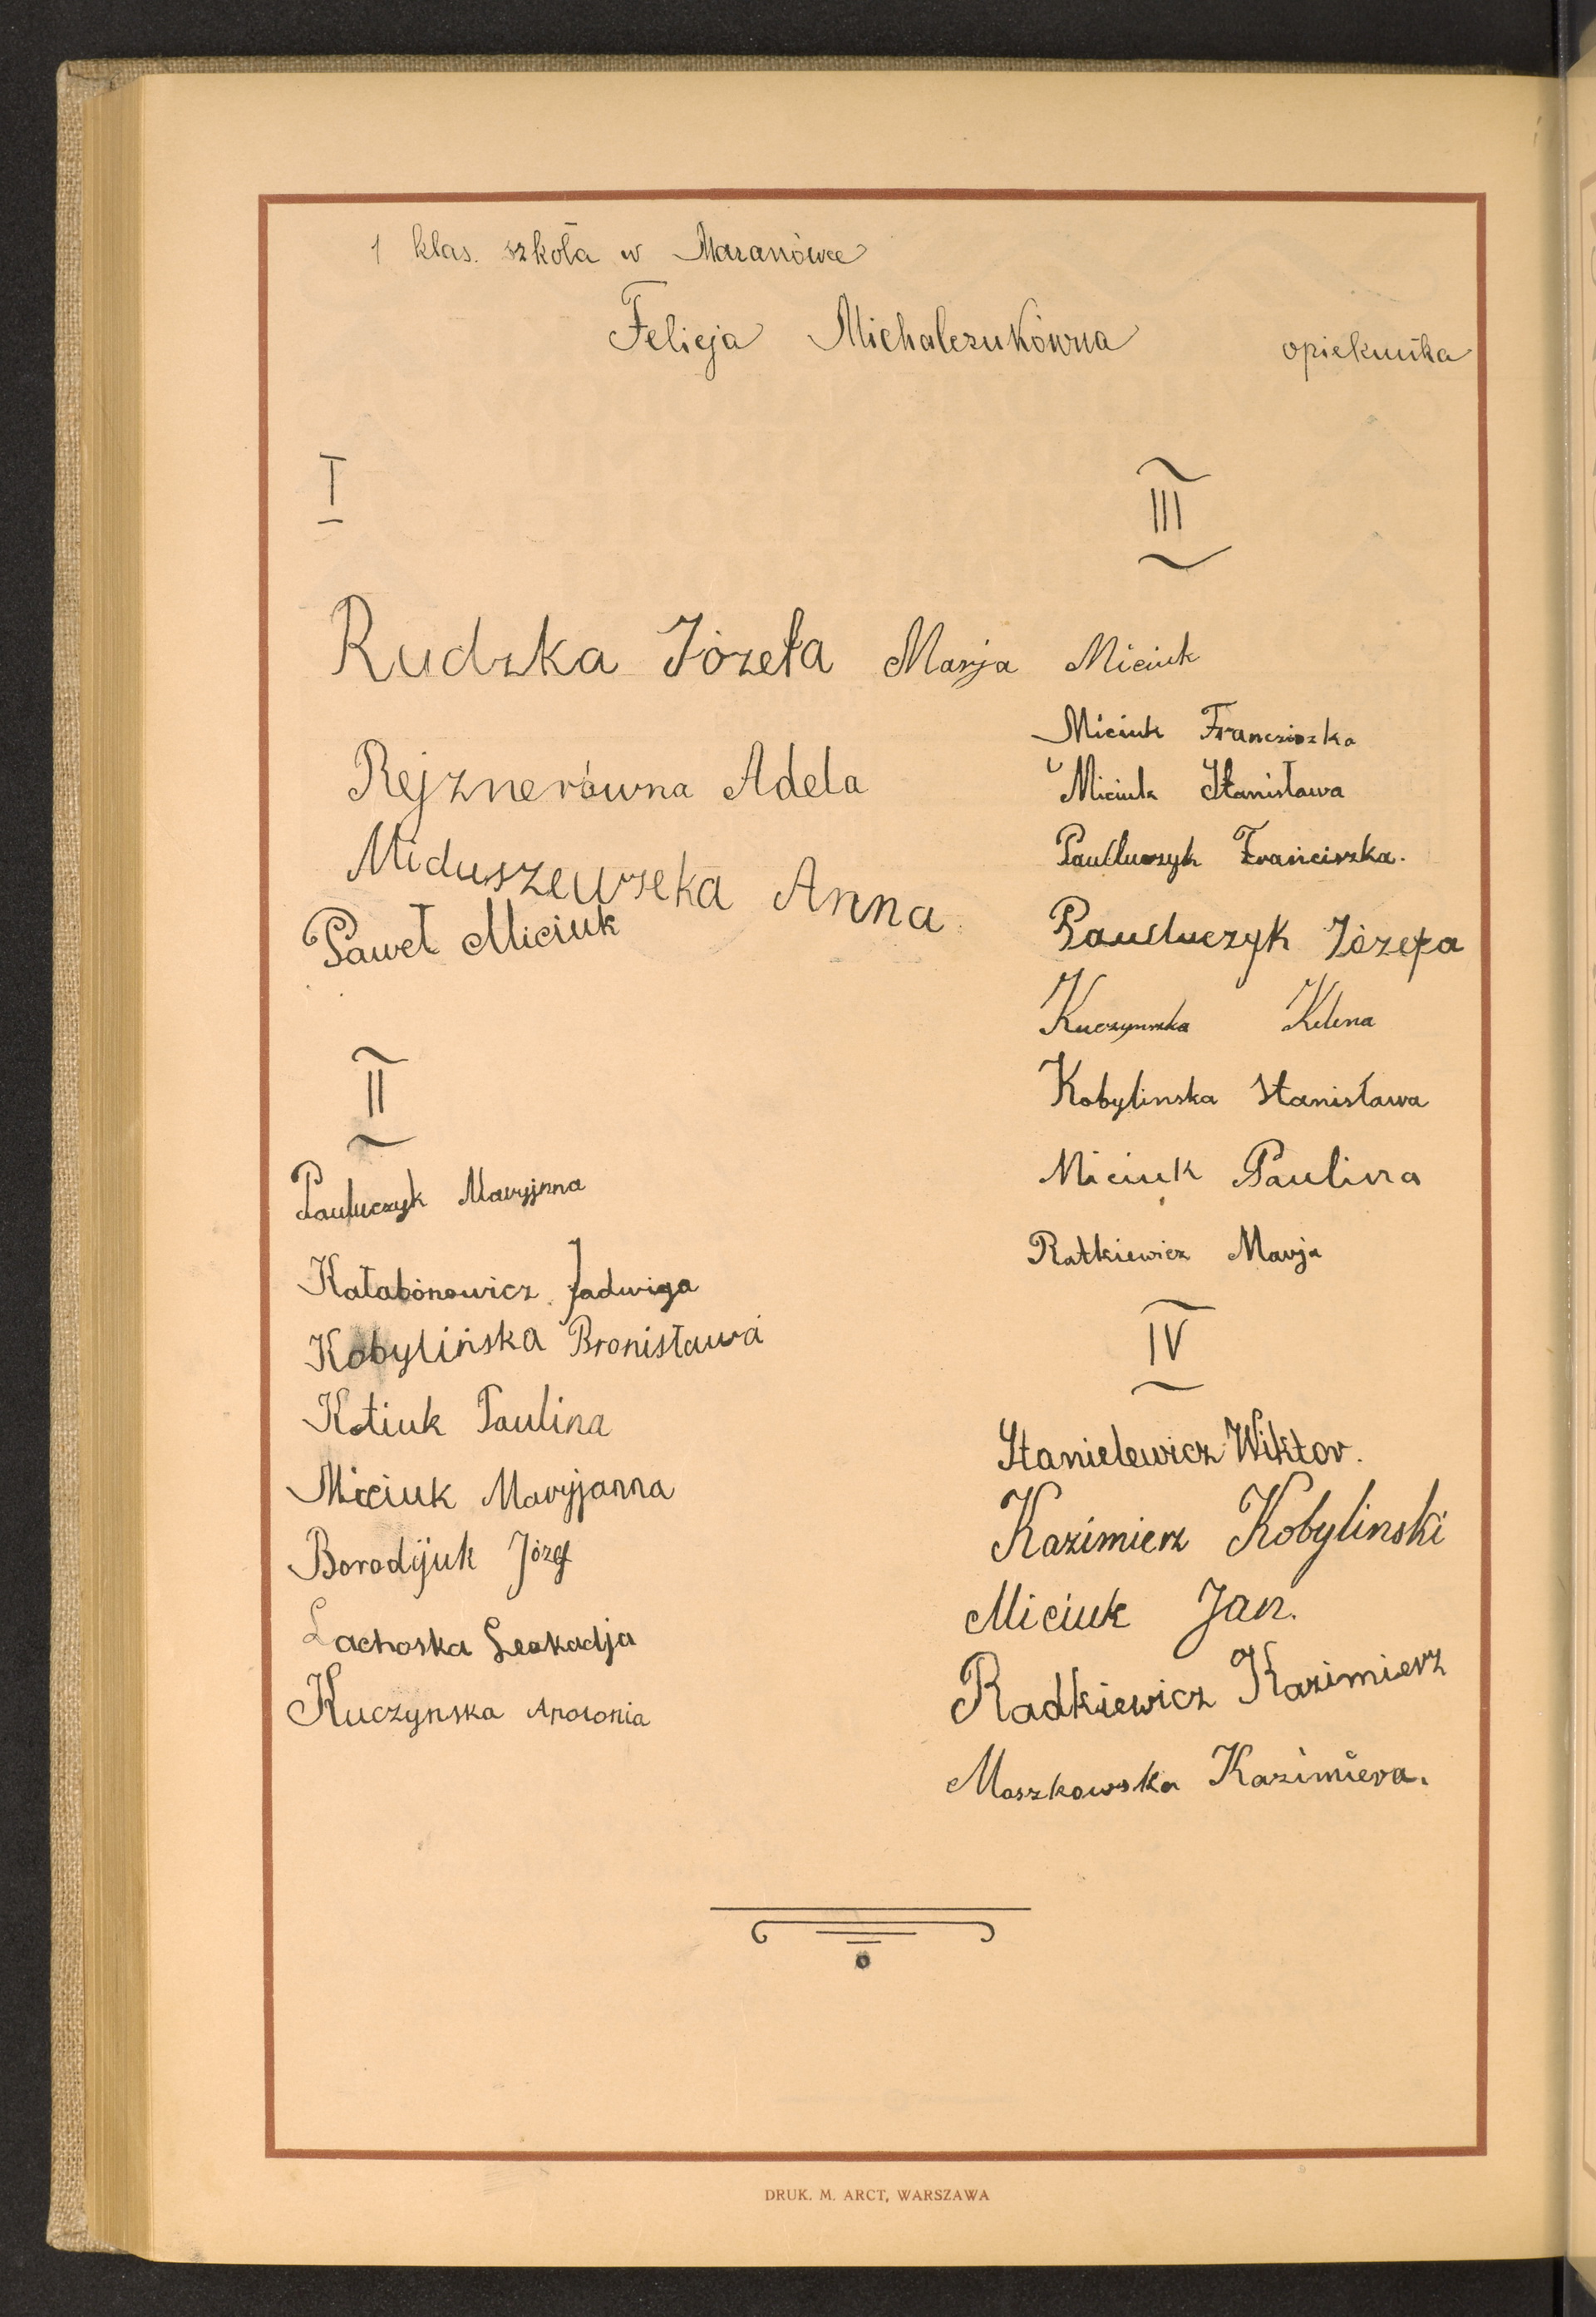 1 klas. szkoła w Mazanówce
Felicja Michalczukówna opiekunka
I
Rudzka Józefa
Rejznerówna Adela
Miduszewska Anna
Paweł Miciuk
II
Pauluczyk Maryjnna
Kałabónowicz Jadwiga
Kobylińska Bronisława
Kotiuk Paulina
Miciuk Maryjanna
Borodijuk Józef
Lachoska Leokadja
Kuczynska Apolonia
III
Marja Miciuk
Miciuk Francziszka
Miciuk Stanisława
Pauluczyk Franciszka.
Pauluczyk Józefa
Kuczynska Helena
Kobylinska Stanisława
Miciuk Paulina
Ratkiewicz Marja
IV
Stanielewicz Wiktor.
Kazimierz Kobylinski
Miciuk Jan.
Radkiewicz Kazimierz
Moszkowska Kazimiera.
DRUK. M. ARCT, WARSZAWA